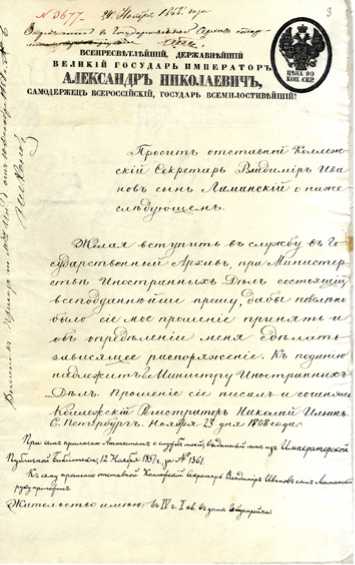 № 3677.
3
ВСЕПРЕСВѢТЛѢЙШІЙ, ДЕРЖАВНѢЙШІЙ
ВЕЛИКІЙ ГОСУДАРЬ ИМПЕРАТОРЪ
АЛЕКСАНДРЪ НИКОЛАЕВИЧЪ,
САМОДЕРЖЕЦЪ ВСЕРОССІЙСКІЙ, ГОСУДАРЬ ВСЕМИЛОСТИВѢЙШІЙ!
ЦѢНА 90
КОП. СЕР.
Проситъ отставной Коллеж-
скій Секретарь Владиміръ Ива
новъ сынъ Ламанскій о ниже
слѣдующемъ
Желая вступить въ службу въ Го
сударственный Архивъ, при Министер
ствѣ Иностранныхъ Дѣлъ состоящій
всеподданнѣйше прошу, дабы повелѣно
было сіе мое прошеніе принять и
объ опредѣленіи меня сдѣлать
зависящее распоряженіе. Къ подачѣ
надлежитъ Министру Иностранныхъ
Дѣлъ. Прошеніе сіе писалъ и сочинялъ
Коллежскій Регистраторъ Николай
С. Петербургъ. Ноября 23 дня 1858 года.
При семъ прилагаю Аттестатъ о службѣ моей, выданный мнѣ изъ Императорской
Публичной Библіотеки, 12 Ноября 1857 г. за № 1361.
Къ сему прошенію отставной Коллежскій Секретарь Владиміръ Ивановъ сынъ Ламанскій
руку приложилъ
Жительство имѣю: въ IV